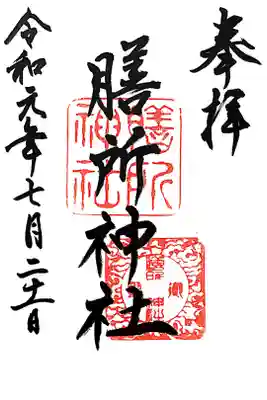 奉拝
膳所神社
膳所
神社
令和元年七月二十一日